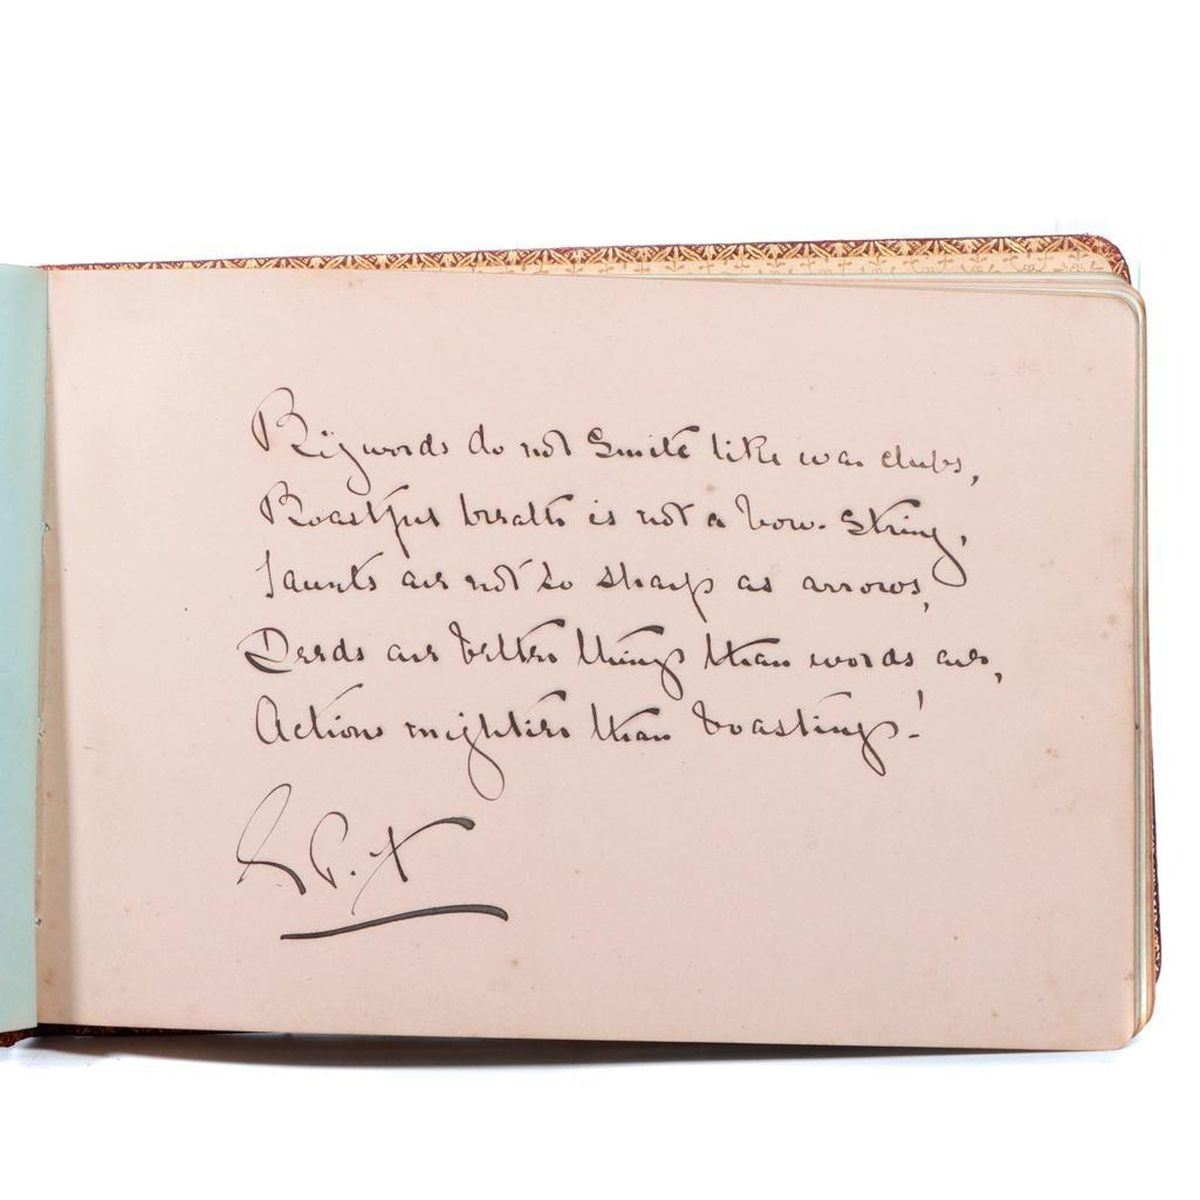 Big words do not smite like war clubs,
Boastful breath is not a bow-string,
Taunts are not so sharp as arrows,
Deeds are better things than words are,
Action mightier than boastings!